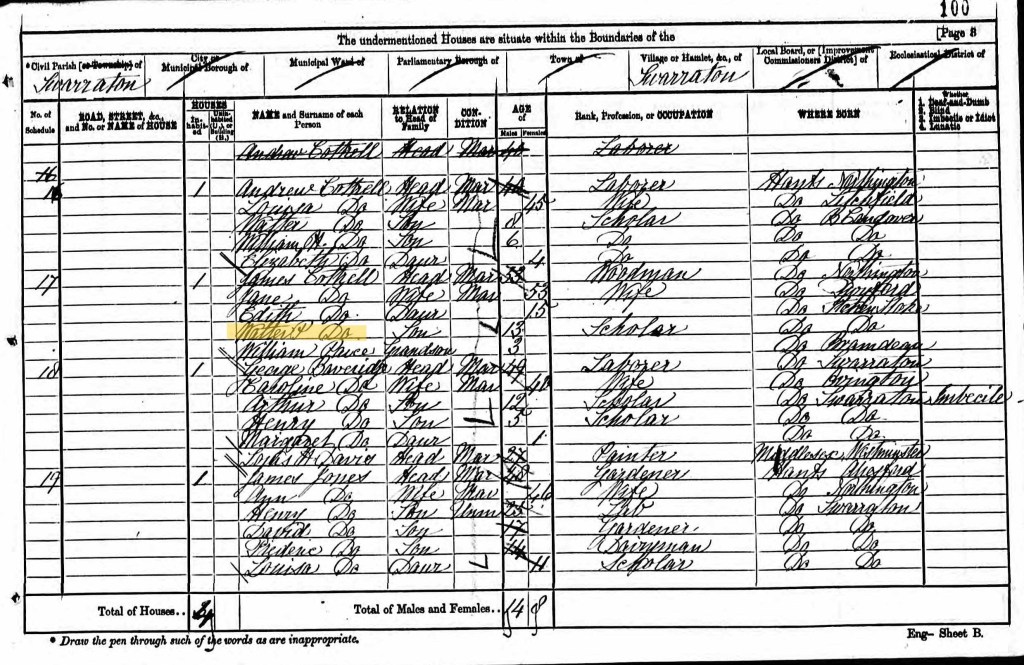 100
The undermentioned Houses are situate within the Boundaries of the [Page 8
*Civil Parish [or Township] of City or Municipal Borough of Municipal Ward of Parliamentary Borough of Town of Village or Hamlet, &c., of Local Board, or [Improvement Commissioners District] of Ecclesiastical District of
Swarraton Swarraton
No. of Schedule ROAD, STREET, &c., and No. or NAME of HOUSE HOUSES Inhabited Uninhabited (U.), or Building (B.) NAME and Surname of each Person RELATION to Head of Family CONDITION AGE of Males Females Rank, Profession, or OCCUPATION WHERE BORN Whether 1. Deaf-and-Dumb 2. Blind 3. Imbecile or Idiot 4. Lunatic
Andrew Cottrell Head Mar 44 Laborer
16 1 Andrew Cottrell Head Mar 44 Laborer Hants Northington
Louisa Do Wife Mar 45 Wife Do Titchfield
Walter Do Son 8 Scholar Do B Candover
William H. Do Son 6 Do Do Do
Elizabeth Do Daur 4 Do Do Do
17 1 James Cottrell Head Mar 53 Woodman Do Northington
Jane Do Wife Mar 53 Wife Do
Edith Do Daur 15 Do
Walter Do Son 13 Scholar Do Do
William Grandson 3 Do Bramdean
18 1 George Head Mar Laborer Do Swarraton
Karoline Do Wife Mar 40 Wife Do Ovington
Arthur Do Son 12 Scholar Do Swarraton Imbecile
Henry Do Son 5 Scholar Do Do
Margaret Do Daur 1 Do Do
H Davis Head Mar 27 Painter Middlesex Westminster
19 1 James Jones Head Mar 48 Gardener Hants Alresford
Ann Do Wife Mar 46 Wife Do Northington
Henry Do Son Unm Lab Do Swarraton
David Do Son 17 Gardener Do Do
Frederic Do Son 14 Dairyman Do Do
Louisa Do Daur 11 Scholar Do Do
Total of Houses.. Total of Males and Females.. 14 8
* Draw the pen through such of the words as are inappropriate. Eng- Sheet B.